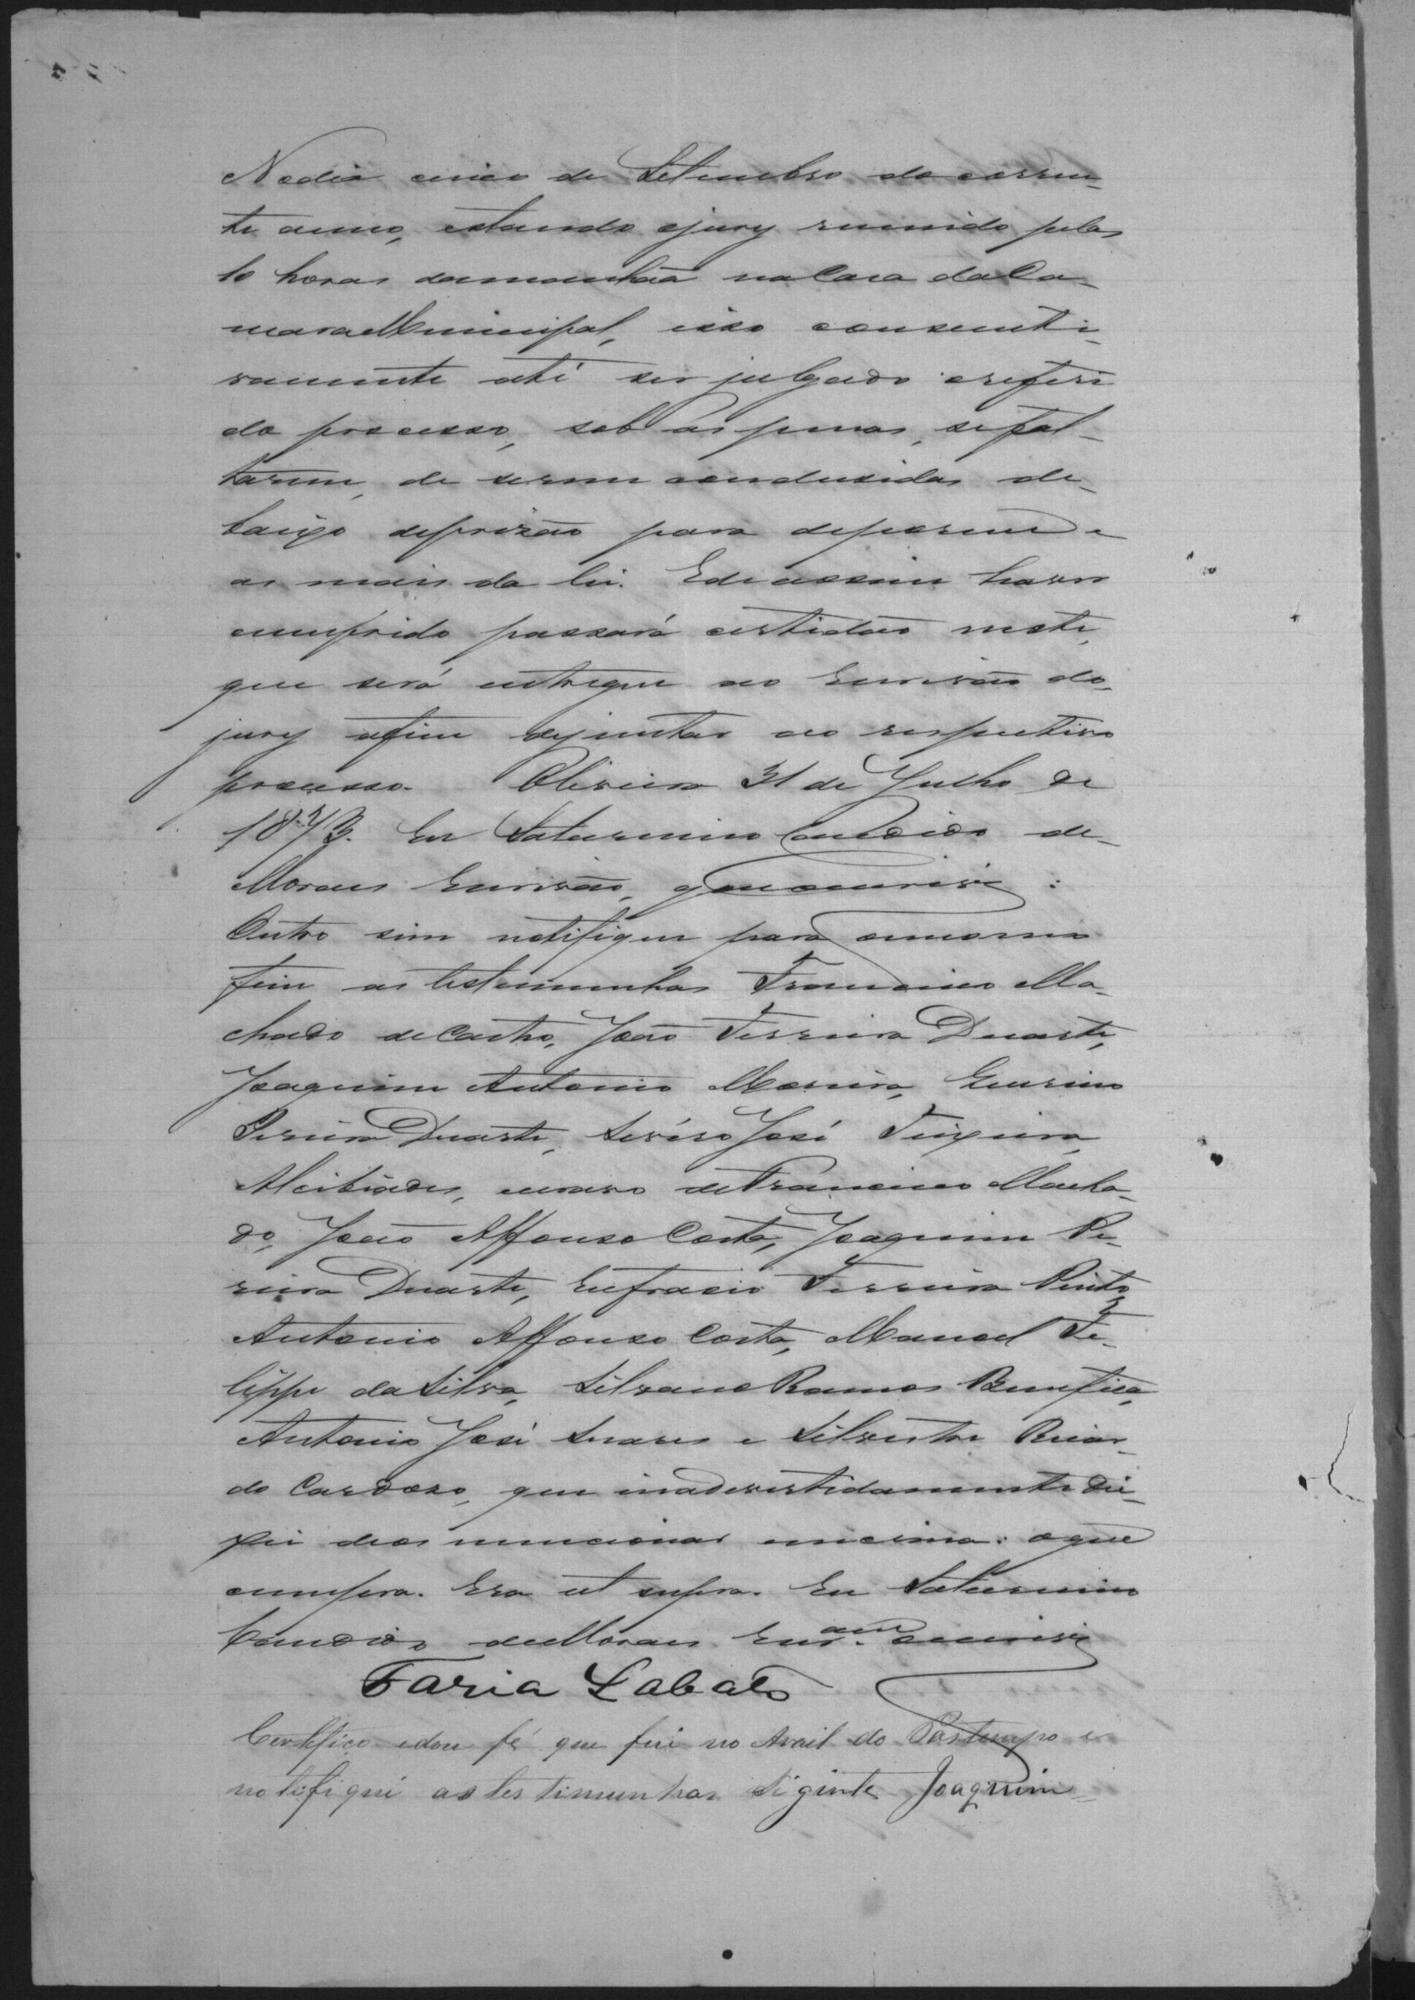 No dia cinco de Setembro do corren-
te anno, estando o jury reunido pelas
10 horas da manhãa na Casa da Ca-
mara Municipal, isso consecuti-
vamente até ser julgado o referi
do processo, sob as penas, se fal-
tarem, de serem condusidas de-
baixo de prizão para deporem e
as mais da lei. E de assim haver
cumprido passará certidão neste,
que será entregue ao Escrivão do
jury afim de juntar ao respectivo
processo. Oliveira 31 de Julho de
1873. Eu Saturnino Candido de
Moraes Escrivão, que o escrevi:
Outro sim notifique para o mesmo
fim as testemunhas Francisco Ma-
chado de Castro, João Ferreira Duarte,
Joaquim Antonio Moreira,
Pereira Duarte, Severo José Teixeira,
Alcibiades, escravo de Francisco Macha-
do, João Affonso Costa, Joaquim Pe-
reira Duarte, Eufracio Ferreira Pinto,
Antonio Affonso Costa, Manoel Fe-
lippe da Silva, Silvano Ramos Bemfica,
Antonio José Soares e Silvestre Ricar-
do Cardoso, que inadvertidamente dei-
xei de os mencionar encima: o que
cumpra. Era ut supra. Eu Saturnino
Candido de Moraes Escr.am o escrevi
Faria Lobato
Certefico e dou fé que fui no do e
notifiqui as testimunhas siginte Joaquim